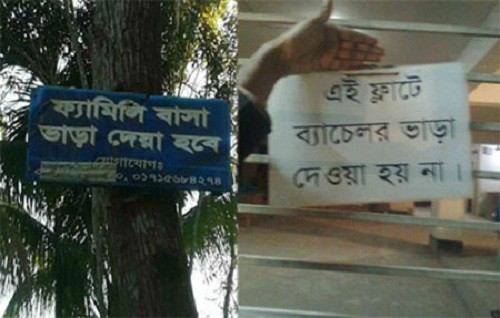 ফ্যামিলি বাসা
ভাড়া দেয়া হবে
যোগাযোগঃ
০১৭১৫৬৮৪২৭৪
এই ফ্লাটে
ব্যাচেলর ভাড়া
দেওয়া হয় না।